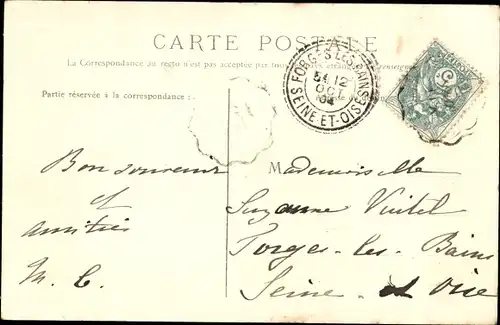 CARTE POSTALE
La Correspondance au recto n'est pas acceptée par tous
Partie réservée à la correspondance :
FORGES LES BAINS
12
OCT
04
SEINE-ET-OISE
5
Bon souvenir
et
amitiés
M. C.
Mademoiselle
Suzanne
Forges-les-Bains
Seine et Oise